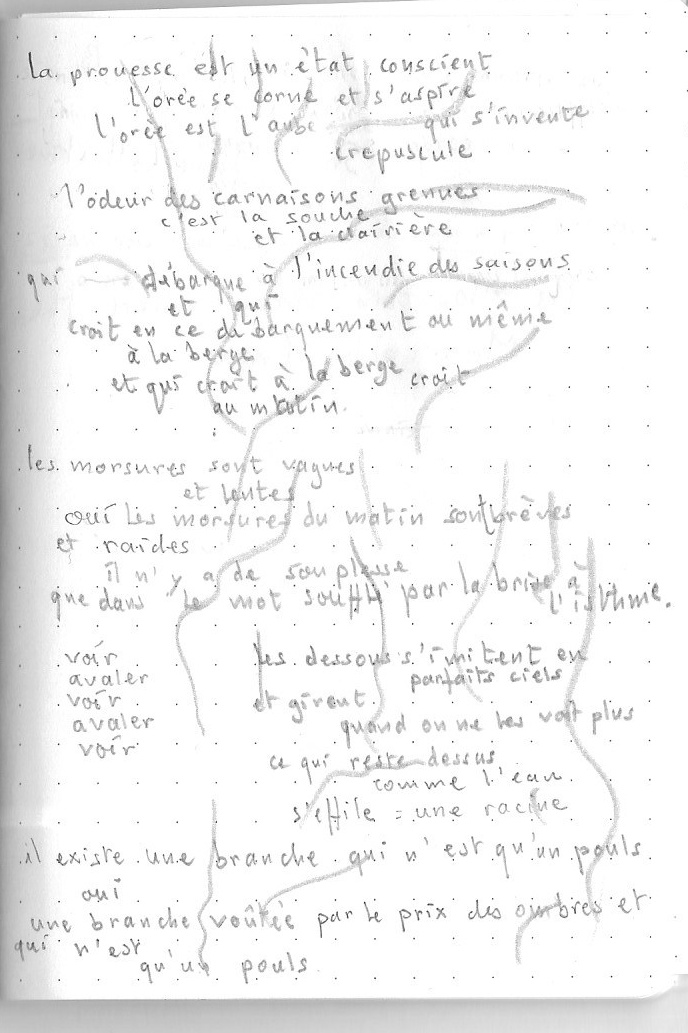 la prouesse est un état conscient
l'orée se corne et s'aspire
l'orée est l'aube qui s'invente
crépuscule
l'odeur des carnaisons grenues
c'est la souche
et la clairière
qui débarque à l'incendie des saisons
et qui
croit en ce débarquement ou même
à la berge
et qui croit à la berge croit
au matin.
les morsures sont vagues
et lentes
oui les morsures du matin sont brèves
et raides
il n'y a de souplesse
que dans le mot soufflé par la brise à
l'isthme.
voir
avaler
voir
avaler
voir
les dessous s'imitent en
parfaits ciels
et girent
quand on ne les voit plus
ce qui reste dessus
comme l'eau
s'effile = une racine
il existe une branche qui n'est qu'un pouls
oui
une branche voûtée par le prix des ombres et
qui n'est
qu'un pouls